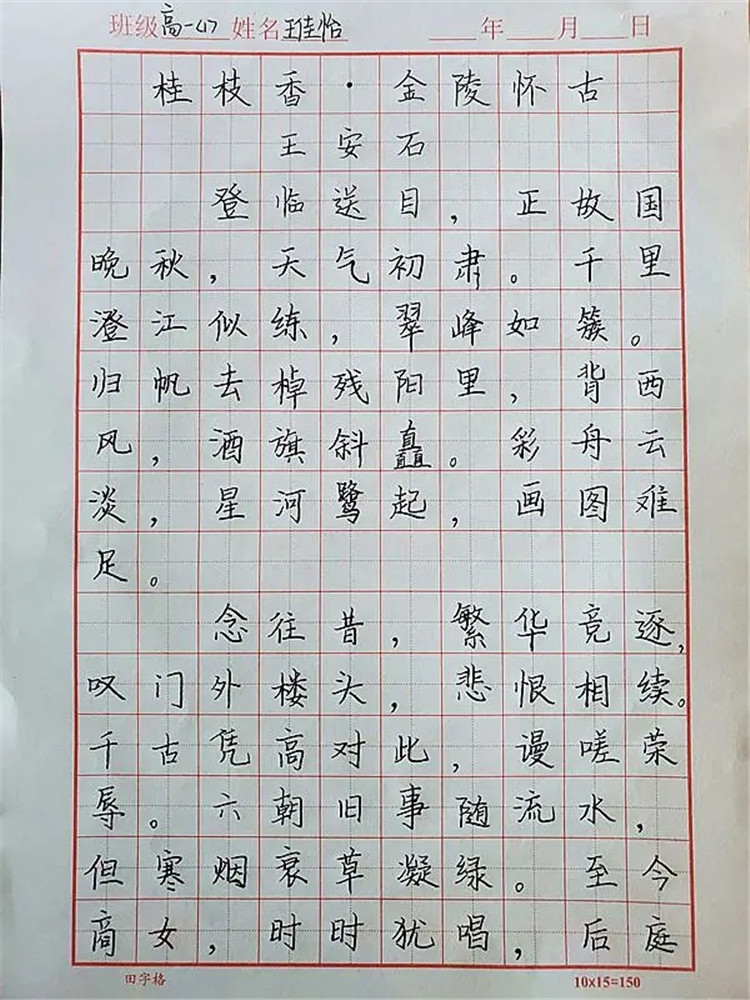 班级高一417 姓名王佳怡 ____年____月____日
桂枝香·金陵怀古
王安石
登临送目，正故国
晚秋，天气初肃。千里
澄江似练，翠峰如簇。
归帆去棹残阳里，背西
风，酒旗斜矗。彩舟云
淡，星河鹭起，画图难
足。
念往昔，繁华竞逐，
叹门外楼头，悲恨相续。
千古凭高对此，谩嗟荣
辱。六朝旧事随流水，
但寒烟衰草凝绿。至今
商女，时时犹唱，后庭
田字格 10×15=150